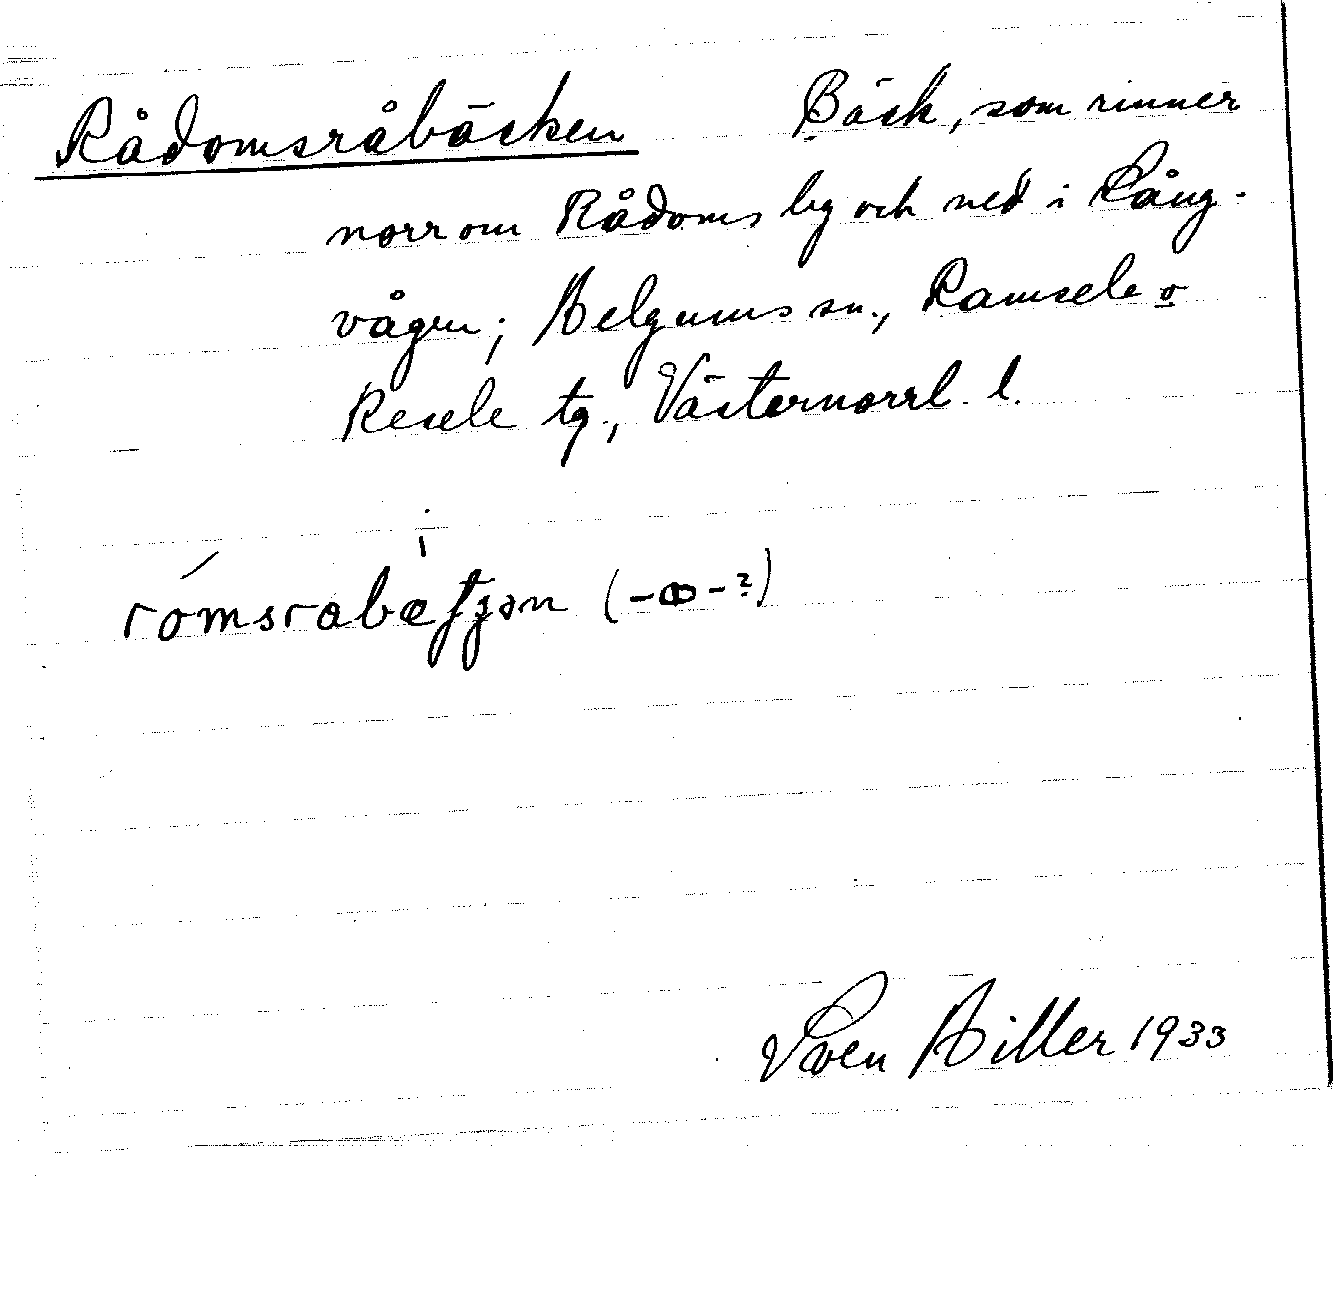 Rådomsråbäcken Bäck, som rinner
norr om Rådoms by och ned i Lång-
vågen; Helgums sn., Ramsele o
Resele tg., Västernorrl. l.
(-ꝏ-?)
Sven Hiller 1933